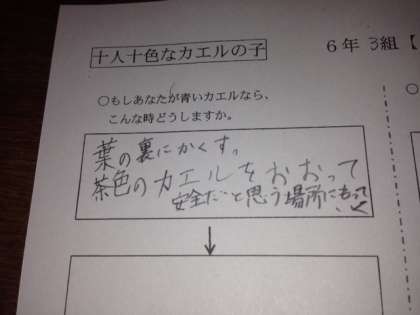 十人十色なカエルの子
6年 3組【
○もしあなたが青いカエルなら、
こんな時どうしますか。
葉の裏にかくす。
茶色のカエルをおおって
安全だと思う場所にもって
いく